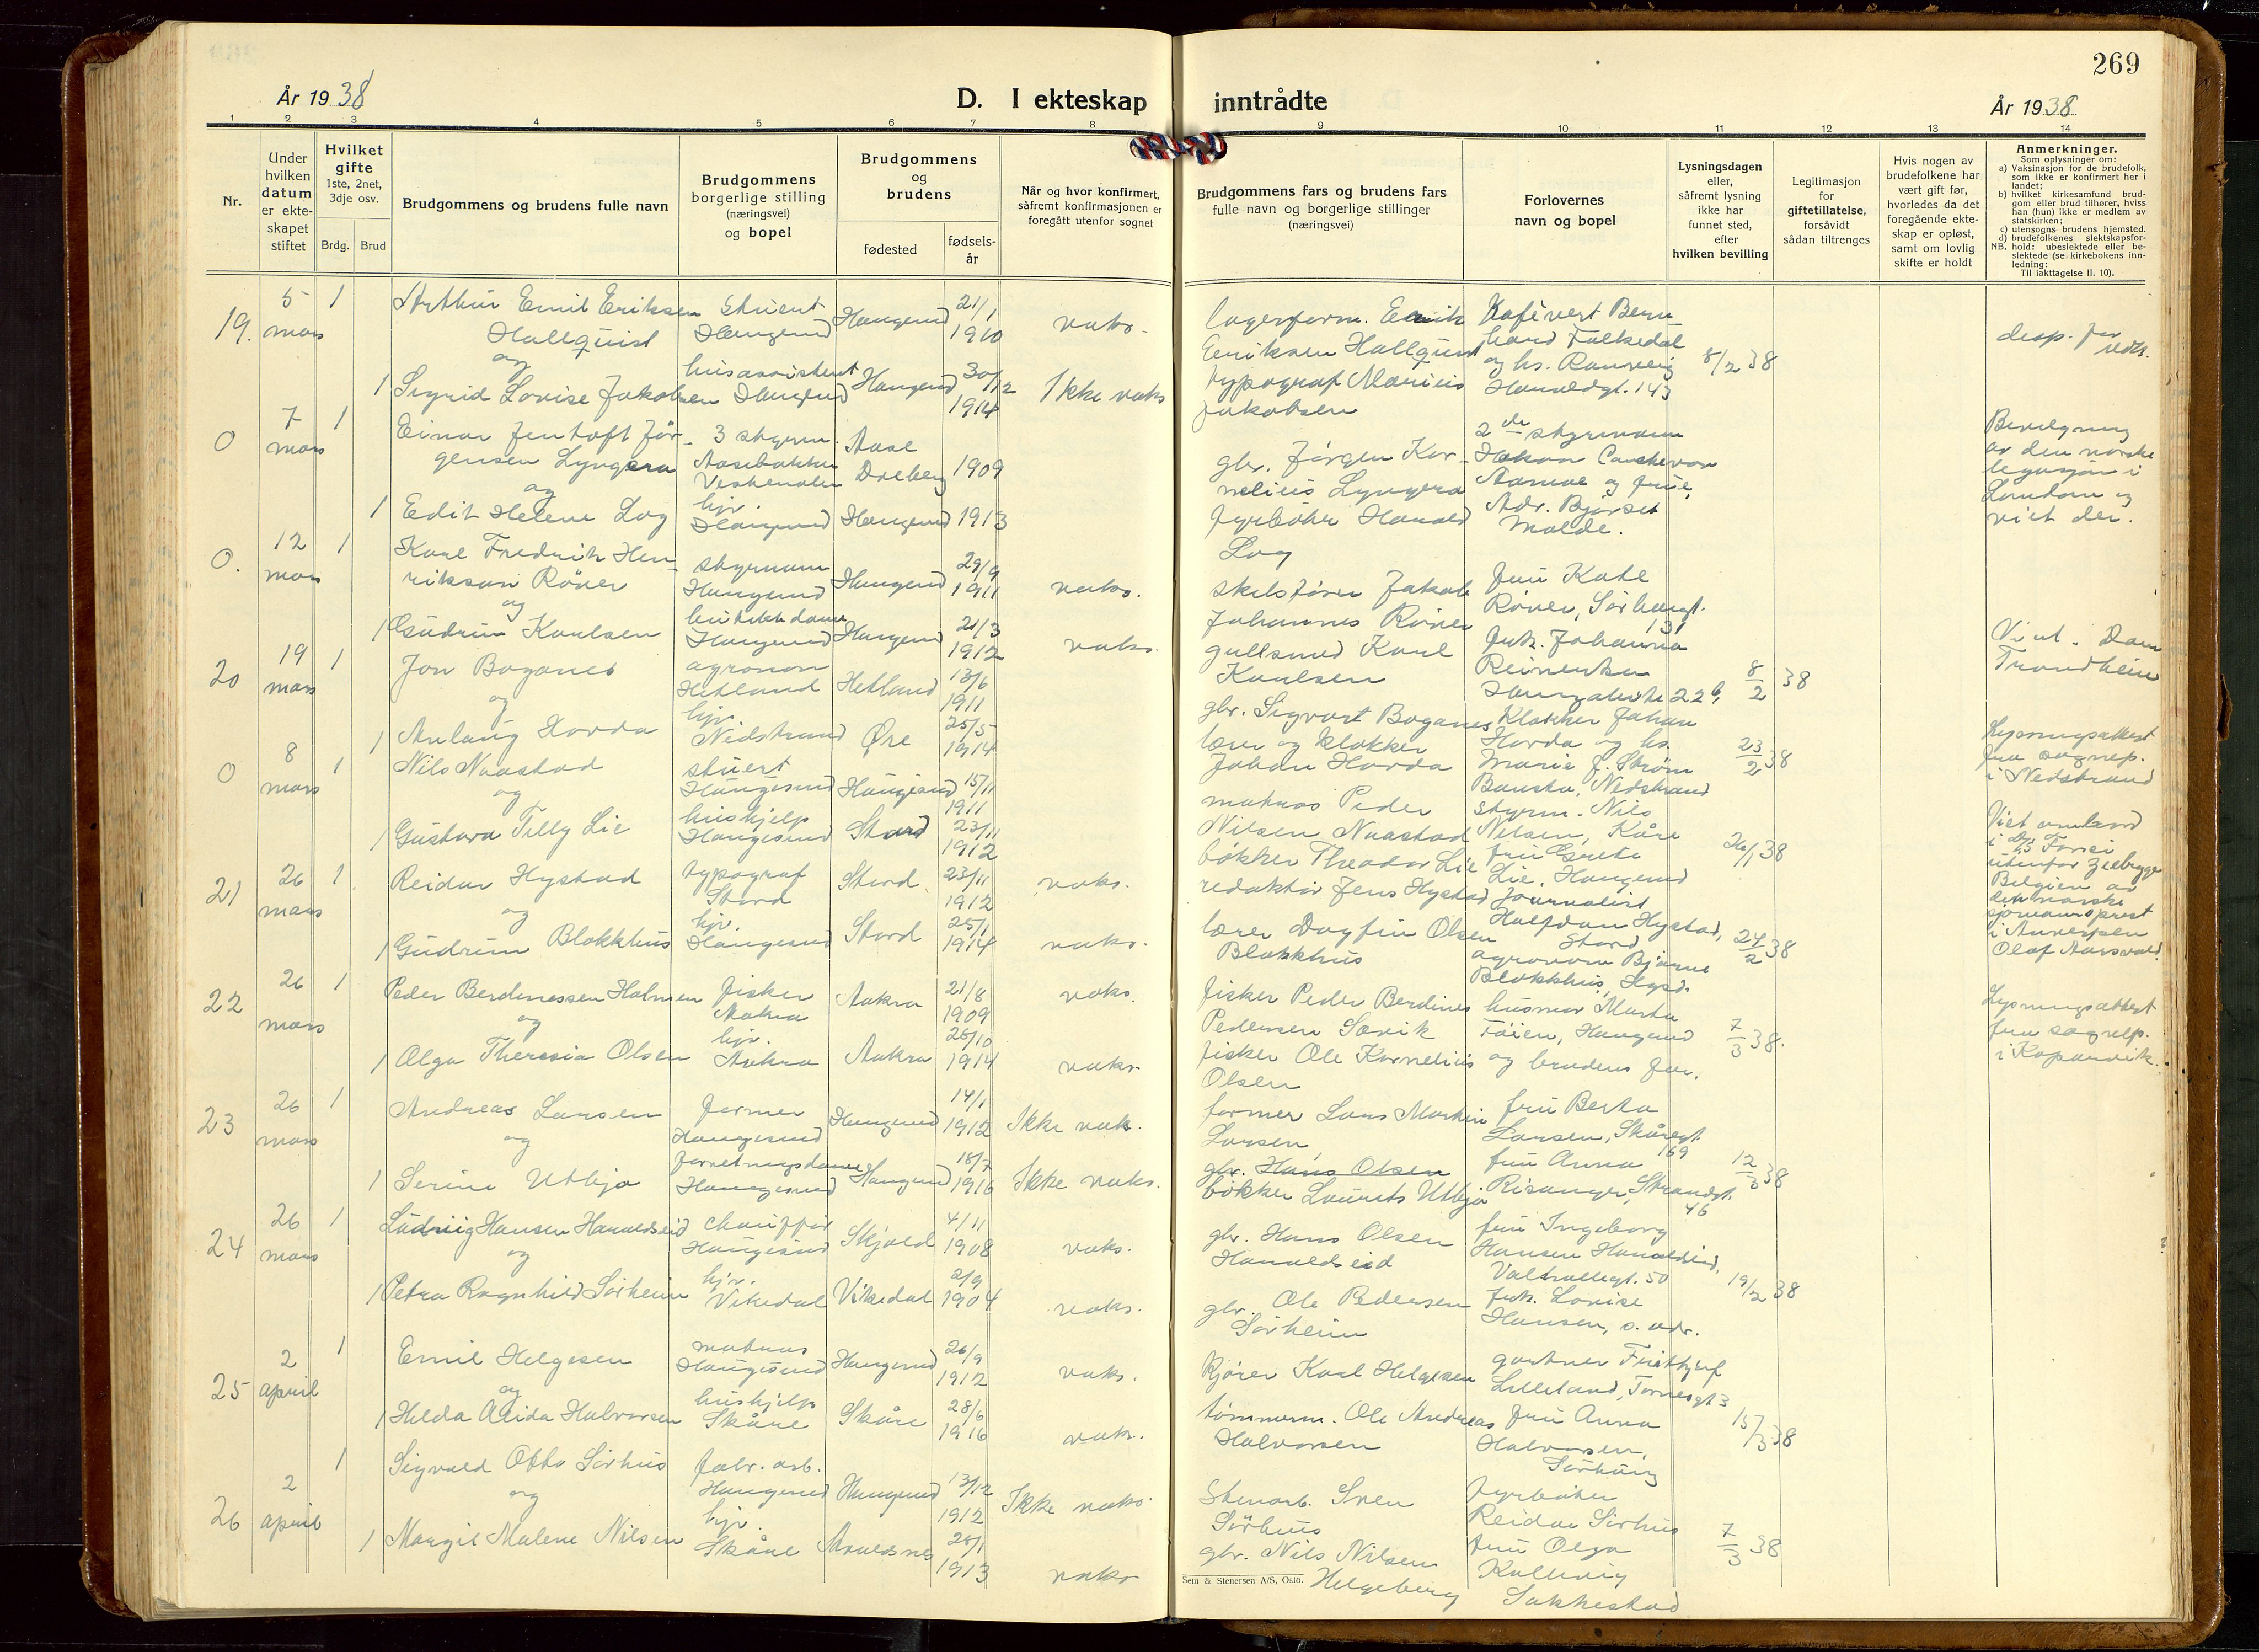 269
År 1938
D. I ekteskap inntrådte
År 1938
1 2 3 4 5 6 7 8 9 10 11 12 13 14
Nr.
Under hvilken datum er ekte-skapet stiftet
Hvilket gifte
1ste, 2net, 3dje osv.
Brdg. Brud
Brudgommens og brudens fulle navn
Brudgommens
borgerlige stilling
(næringsvei)
og bopel
Brudgommens
og
brudens
fødested
fødsels-
år
Når og hvor konfirmert,
såfremt konfirmasjonen er
foregått utenfor sognet
Brudgommens fars og brudens fars
fulle navn og borgerlige stillinger
(næringsvei)
Forlovernes
navn og bopel
Lysningsdagen
eller,
såfremt lysning
ikke har
funnet sted,
efter
hvilken bevilling
Legitimasjon
for
giftetillatelse,
forsåvidt
sådan tiltrenges
Hvis nogen av
brudefolkene har
vært gift før,
hvorledes da det
foregående ekte-
skap er opløst,
samt om lovlig
skifte er holdt
Anmerkninger.
Som oplysninger om:
a) Vaksinasjon for de brudefolk,
som ikke er konfirmert her i
landet;
b) hvilket kirkesamfund brud-
gom eller brud tilhører, hviss
han (hun) ikke er medlem av
statskirken;
c) utensogns brudens hjemsted.
d) brudefolkenes slektskapsfor-
NB. hold: ubeslektede eller be-
slektede (se kirkebokens inn-
ledning:
Til iakttagelse II. 10).
19. 5 mars 1
Arthur Emil Eriksen
Hallquist
og
1 Sigrid Lovise Jakobsen
stuert
Haugesund
husassistent
Haugesund
Haugesund 21/1 1910
Haugesund 30/12 1914
vaks.
Ikke vaks
lagerform. Emil
Eriksen Hallquist
typograf Marius
Jakobsen
Kafévert Bern
hard Falkedal
og hs. Ranveig
Haraldgt. 143
8/2 38
0 7 mars 1
Einar Jentoft Jör-
gensen Lyngera
og
1 Edit Helene Log
3 styrm.
hjv.
Haugesund
1909
Haugesund 1913
gbr. Jörgen Kor-
nelius Lyngera
fyrbøter Harald
Log
2den styrmann
Aamoe og frue,
Adr. Björset
Molde.
Bevilgning
av den norske
legasjon i
London og
viet der.
0. 12 mars 1
Karl Fredrik Hen-
riksen Röver
og
1 Gudrun Karlsen
styrmann
Haugesund
butikkdame
Haugesund
Haugesund 29/9 1911
Haugesund 21/3 1912
vaks.
vaks.
skibsfører Jakob
Johannes Röver
gullsmed Karl
Karlsen
fru Kate
Röver, Sörhaugt.
131
frk. Johanna
Reinertsen
8/2 38
Viet. Dom
Trondheim
20 19 mars 1
Jon Boganes
og
1 Aslaug Horda
agronom
Hetland
hjv.
Nedstrand
Hetland 13/6 1911
Øre 25/5 1914
gbr. Sigvart Boganes
lærer og klokker
Johan Horda
Klokker Johan
Horda og hs.
Marie f. Ström
Nedstrand
23/2 38
Lysningsattest
fra sognep.
i Nedstrand
0 8 mars 1
Nils Naastad
og
1 Gustava Tilly Lie
stuert
Haugesund
hushjelp
Haugesund
Haugesund 15/11 1911
Stord 23/11 1912
matros Peder
Nilsen Naastad
bökker Theodor Lie
styrm. Nils
Nilsen, Kåre
fru Grete
Lie, Haugesund
26/1 38
Viet ombord
utenfor Zeebrygge
Belgien av
den norske
sjömannsprest
i Antverpen
Olaf Aarsvold.
21 26 mars 1
Reidar Hystad
og
1 Gudrun Blokkhus
typograf
Stord
hjv.
Haugesund
Stord 23/11 1912
Stord 25/1 1914
vaks.
vaks.
redaktör Jens Hystad
lærer Dagfin Olsen
Blokkhus
Journalist
Halfdan Hystad,
Stord
agronom Bjarne
Blokkhus, Hgsd.
24/2 38
22 26 mars 1
Peder Berdinessen Holmen
og
1 Olga Theresia Olsen
fisker
Aakra
hjv.
Aakra
Aakra 21/8 1909
Aakra 25/10 1914
vaks.
vaks.
fisker Peder Berdines
Pedersen Sævik
fisker Ole Kornelius
Olsen
husmor Marta
Töien, Haugesund
og brudens far.
7/3 38.
Lysningsattest
fra sognep.
i Kopervik.
23 26 mars 1
Andreas Larsen
og
1 Serine Utbjo
former
Haugesund
forretningsdame
Haugesund
Haugesund 14/1 1912
Haugesund 18/7 1916
Ikke vak.
Ikke vaks.
former Lars Martin
Larsen
gbr. Hans Olsen
bökker Laurits Utbjo
fru Berta
Larsen, Skåregt.
169
fru Anna
Risanger, Strandgt.
46
12/3 38
24 26 mars 1
Ludvig Hansen Haraldseid
og
1 Petra Ragnhild Sörheim
chauffør
Haugesund
hjv.
Vikedal
Skjold 4/11 1908
Vikedal 2/9 1904
vaks.
vaks.
gbr. Hans Olsen
Haraldseid
gbr. Ole Pedersen
Sörheim
fru Ingeborg
Hansen Haraldseid,
Valhallagt. 50
frk. Lovise
Hansen, s. adr.
19/2 38
25 2 april 1
Emil Helgesen
og
1 Helda Alida Halvorsen
matros
Haugesund
hushjelp
Skåre
Haugesund 26/9 1912
Skåre 28/6 1916
vaks.
vaks.
kjører Karl Helgesen
tömmerm. Ole Andreas
Halvorsen
gartner Fritjof
Lilleland, Tornesgt 3
fru Anna
Halvorsen,
Sörhaug
15/3 38
26 2 april 1
Sigvald Otto Sörhus
og
1 Margit Malene Nilsen
fabr. arb.
Haugesund
hjv.
Skåre
Haugesund 13/12 1912
Avaldsnes 25/1 1913
Ikke vaks.
vaks
Stenarb. Sven
Sörhus
gbr. Nils Nilsen
Helgeberg
fyrbøter
Reidar Sörhus
fru Olga
Kallevig
Sakkestad
7/3 38
Sem & Stenersen A/S, Oslo.